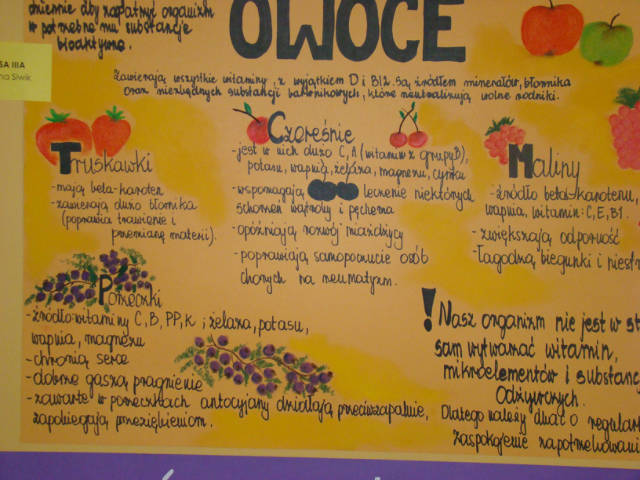 dziennie aby zapatrzyć organizm
w potrzebne mu substancje
bioaktywne.
SA IIIA
na Siwik
OWOCE
Zawierają wszystkie witaminy, z wyjątkiem D i B12. Są źródłem minerałów, błonnika
oraz niezbędnych substancji balastowych, które neutralizują wolne rodniki.
Truskawki
- mają beta-karoten
- zawierają dużo błonnika
(poprawia trawienie i
przemianę materii).
Czereśnie
- jest w nich dużo C, A (witamin z grupy B),
potasu, wapnia, żelaza, magnezu, cynku
- wspomagają leczenie niektórych
schorzeń wątroby i pęcherza
- opóźniają rozwój miażdżycy
- poprawiają samopoczucie osób
chorych na reumatyzm.
Maliny
- źródło beta-karotenu,
wapnia, witamin: C, E, B1.
- zwiększają odporność
- łagodzą biegunki i niest
Porzeczki
- źródło witaminy C, B, PP, K i żelaza, potasu,
wapnia, magnezu
- chronią serce
- dobrze gaszą pragnienie
- zawarte w porzeczkach antocyjany działają przeciwzapalnie,
zapobiegają przeziębieniom.
! Nasz organizm nie jest w st
sam wytwarzać witamin,
mikroelementów i substanc
Odżywczych.
Dlatego należy dbać o regular
zaspokojenie zapotrzebowani